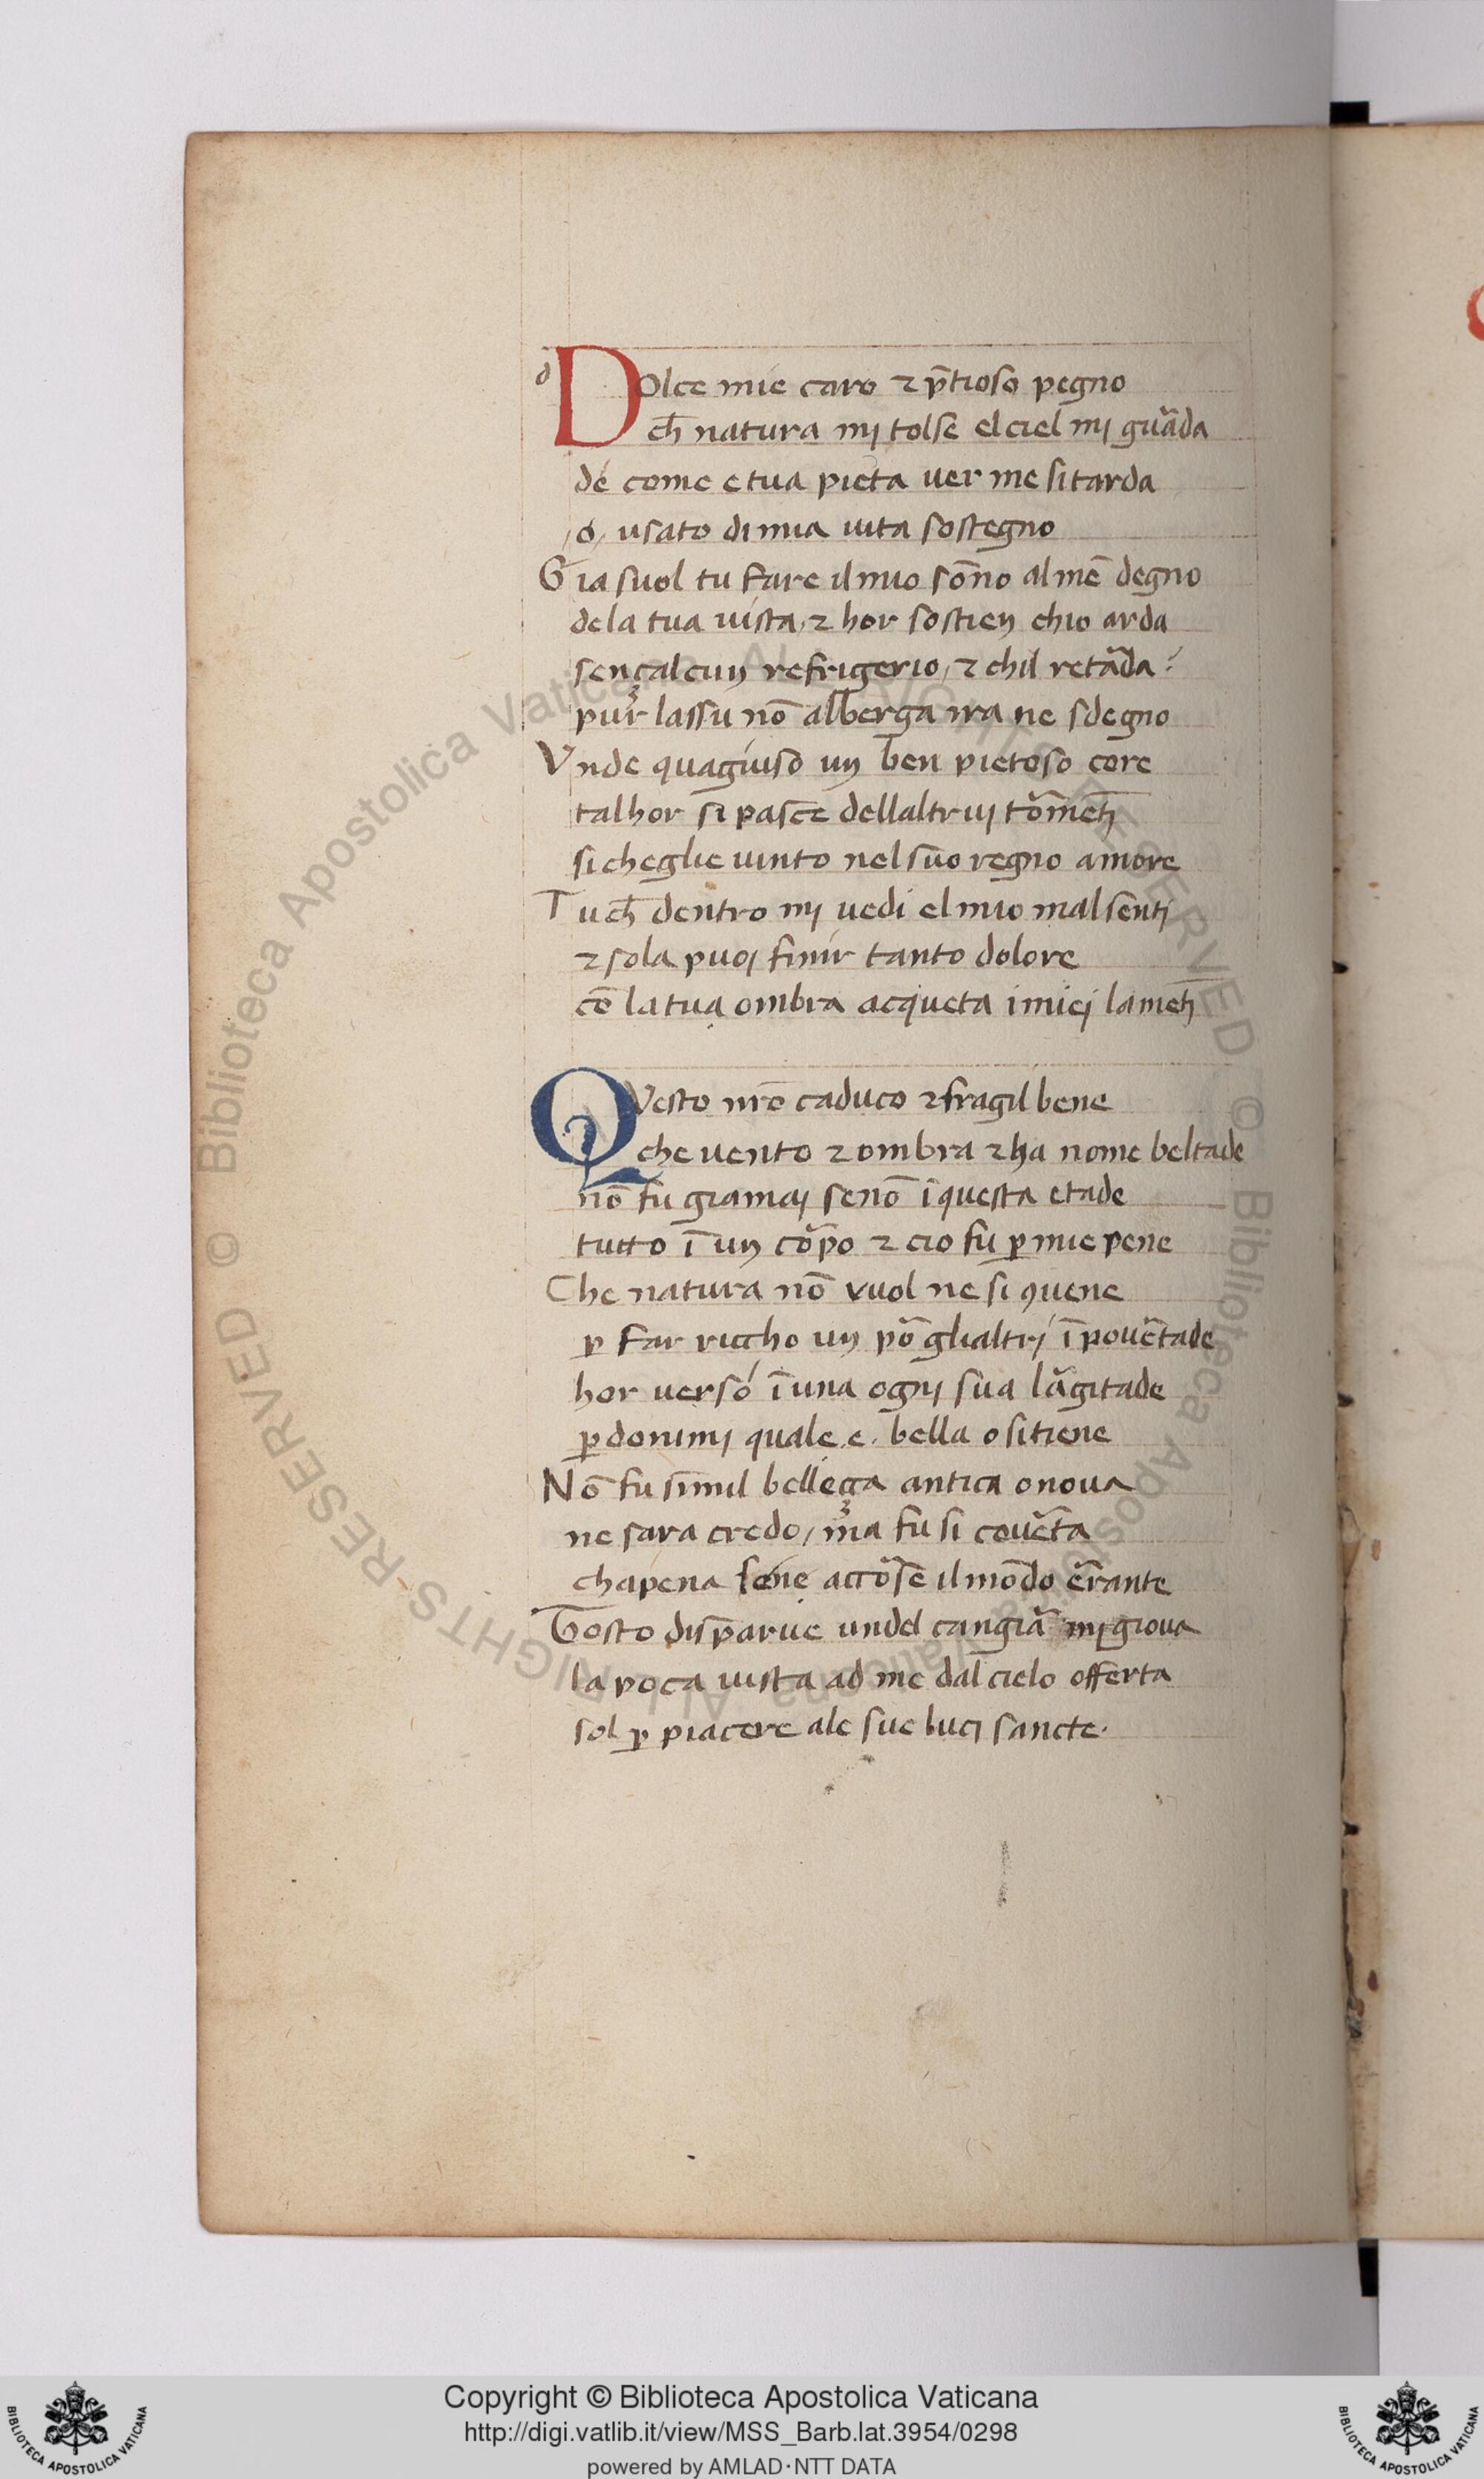 d
Dolce mie caro ⁊ p̄tioso pegno
ch̄ natura mj tolse el ciel mj guãda
de come e tua pieta ver me si tarda
/o/ usato di mia uita sostegno
Gia suol tu fare il mio sōno almē degno
de la tua uista/⁊ hor sostien chio arda
sença lcun refrigerio/⁊ chil retãda?
pur lassu nō alberga ira ne sdegno
Vnde quagiuso un ben pietoso core
talhor si pasce dellaltruj tõmēti
si cheglie uinto nel suo regno amore
Tu ch̄ dentro mj uedi el mio mal senti
⁊ sola puoj finir tanto dolore
cō la tua ombra acqueta i miej lamēti
QVesto nr̄o caduco ⁊ fragil bene
che uento ⁊ ombra ⁊ ha nome beltade
nō fu giamaj se nō ī questa etade
tutto ī un cõpo ⁊ cio fu ꝑ mie pene
Che natura nō vuol ne si ꝯuene
ꝑ far riccho un põ glialtrj ī pouẽtade
hor verso ī una ognj sua lãgitade
ꝑdonimj quale.e. bella o si tiene
Nō fu simil belleça antica o noua
ne sara credo/ma fu si couẽta
chapena se ne accõse il mōdo ẽrante
Tosto disparue undel cangiã mj gioua
la poca uista ad me dal cielo offerta
sol ꝑ piacere ale sue lucj sancte.
Copyright © Biblioteca Apostolica Vaticana
http://digi.vatlib.it/view/MSS_Barb.lat.3954/0298
powered by AMLAD·NTT DATA
BIBLIOTECA APOSTOLICA VATICANA
BIBLIOTECA APOSTOLICA VATICANA